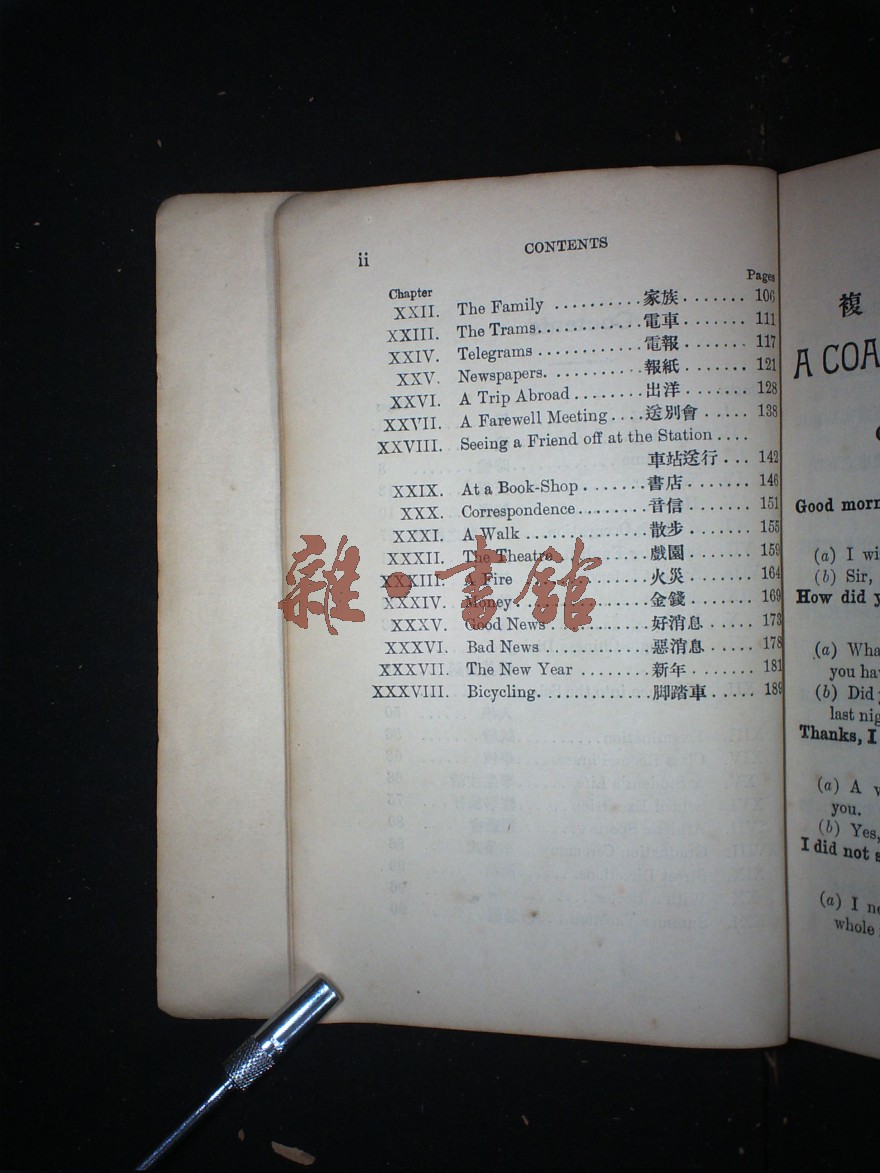 ii
CONTENTS
Chapter Pages
XXII. The Family ..........家族....... 106
XXIII. The Trams............電車....... 111
XXIV. Telegrams ............電報....... 117
XXV. Newspapers...........報紙....... 121
XXVI. A Trip Abroad........出洋....... 128
XXVII. A Farewell Meeting....送別會..... 138
XXVIII. Seeing a Friend off at the Station ....
車站送行... 142
XXIX. At a Book-Shop.......書店....... 146
XXX. Correspondence.......音信....... 151
XXXI. A Walk .............散步....... 155
XXXII. The Theatre..........戲園....... 159
XXXIII. A Fire .............火災....... 164
XXXIV. Money..............金錢....... 169
XXXV. Good News..........好消息..... 173
XXXVI. Bad News ..........惡消息..... 178
XXXVII. The New Year ........新年....... 181
XXXVIII. Bicycling............脚踏車..... 189
雜·書館
複
A COA
Good morn
(a) I wi
(b) Sir,
How did y
(a) Wha
you hav
(b) Did
last nig
Thanks, I
(a) A
you.
(b) Yes,
I did not s
(a) I ne
whole